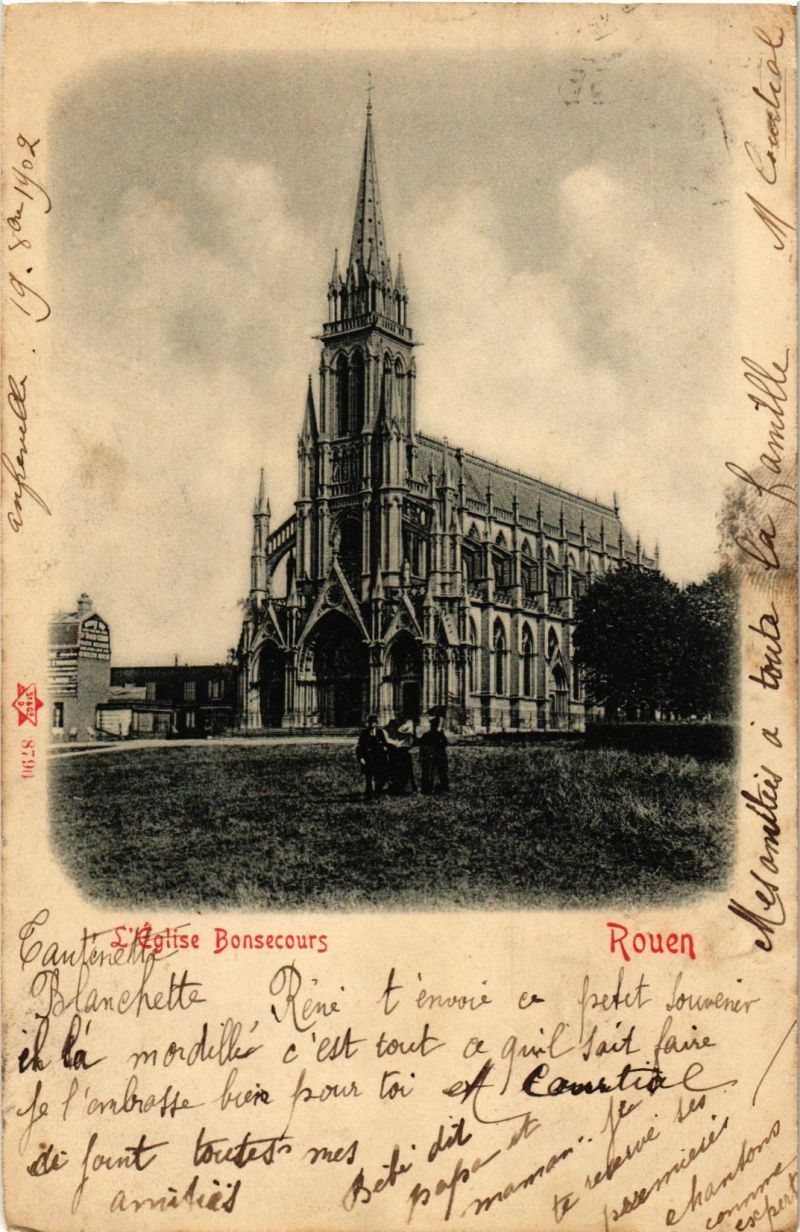 19. 8bre 1902
M Courtial
Mes amitiés à toute la famille
8790
L'Église Bonsecours
Rouen
Blanchette Réné t'envoie ce petit souvenir
il l'a mordillé c'est tout ce qu'il sait faire
Je l'embrasse bien pour toi M Courtial
di joint toutes mes
amitiés
Bébé dit
papa et
maman.. Je
te réserve ses
premières
chansons
comme
expert